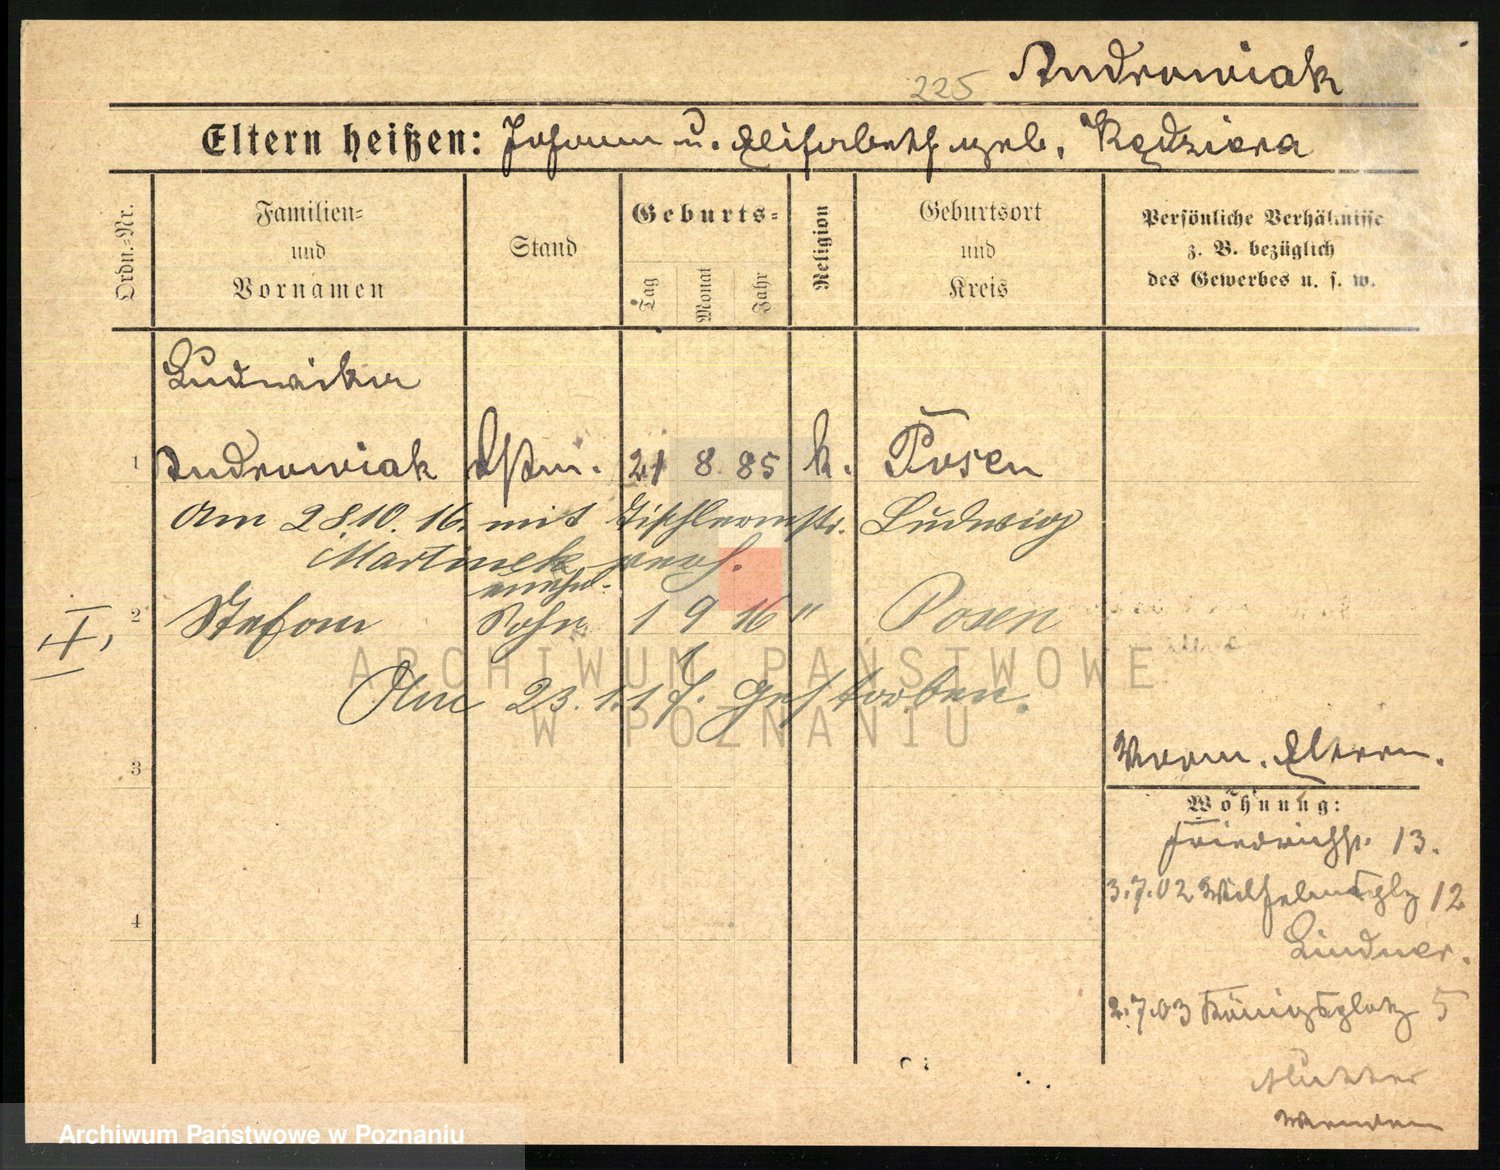 225 Androwiak
Eltern heißen: Johann u. Elisabeth geb. Kędziora
Ordn.-Nr.
Familien-
und
Vornamen
Stand
Geburts-
Tag
Monat
Jahr
Religion
Geburtsort
und
Kreis
Persönliche Verhältnisse
z. B. bezüglich
des Gewerbes u. s. w.
Ludwika
1 Androwiak 21 8. 85 k. Posen
Am 28 10. 16. mit Tischlermstr. Ludwig
Martinek verh.
unehel.
II, 2 Stefan Sohn 1 9 16 " Posen
Am 23. 1. 17. gestorben.
3
Vorm. Eltern.
Wohnung:
Friedrichstr. 13.
3.7.02 Wilhelmsplz 12
Lindner.
4
2.7.03 Königsplatz 5
Mutter
ARCHIWUM PAŃSTWOWE
W POZNANIU
Archiwum Państwowe w Poznaniu